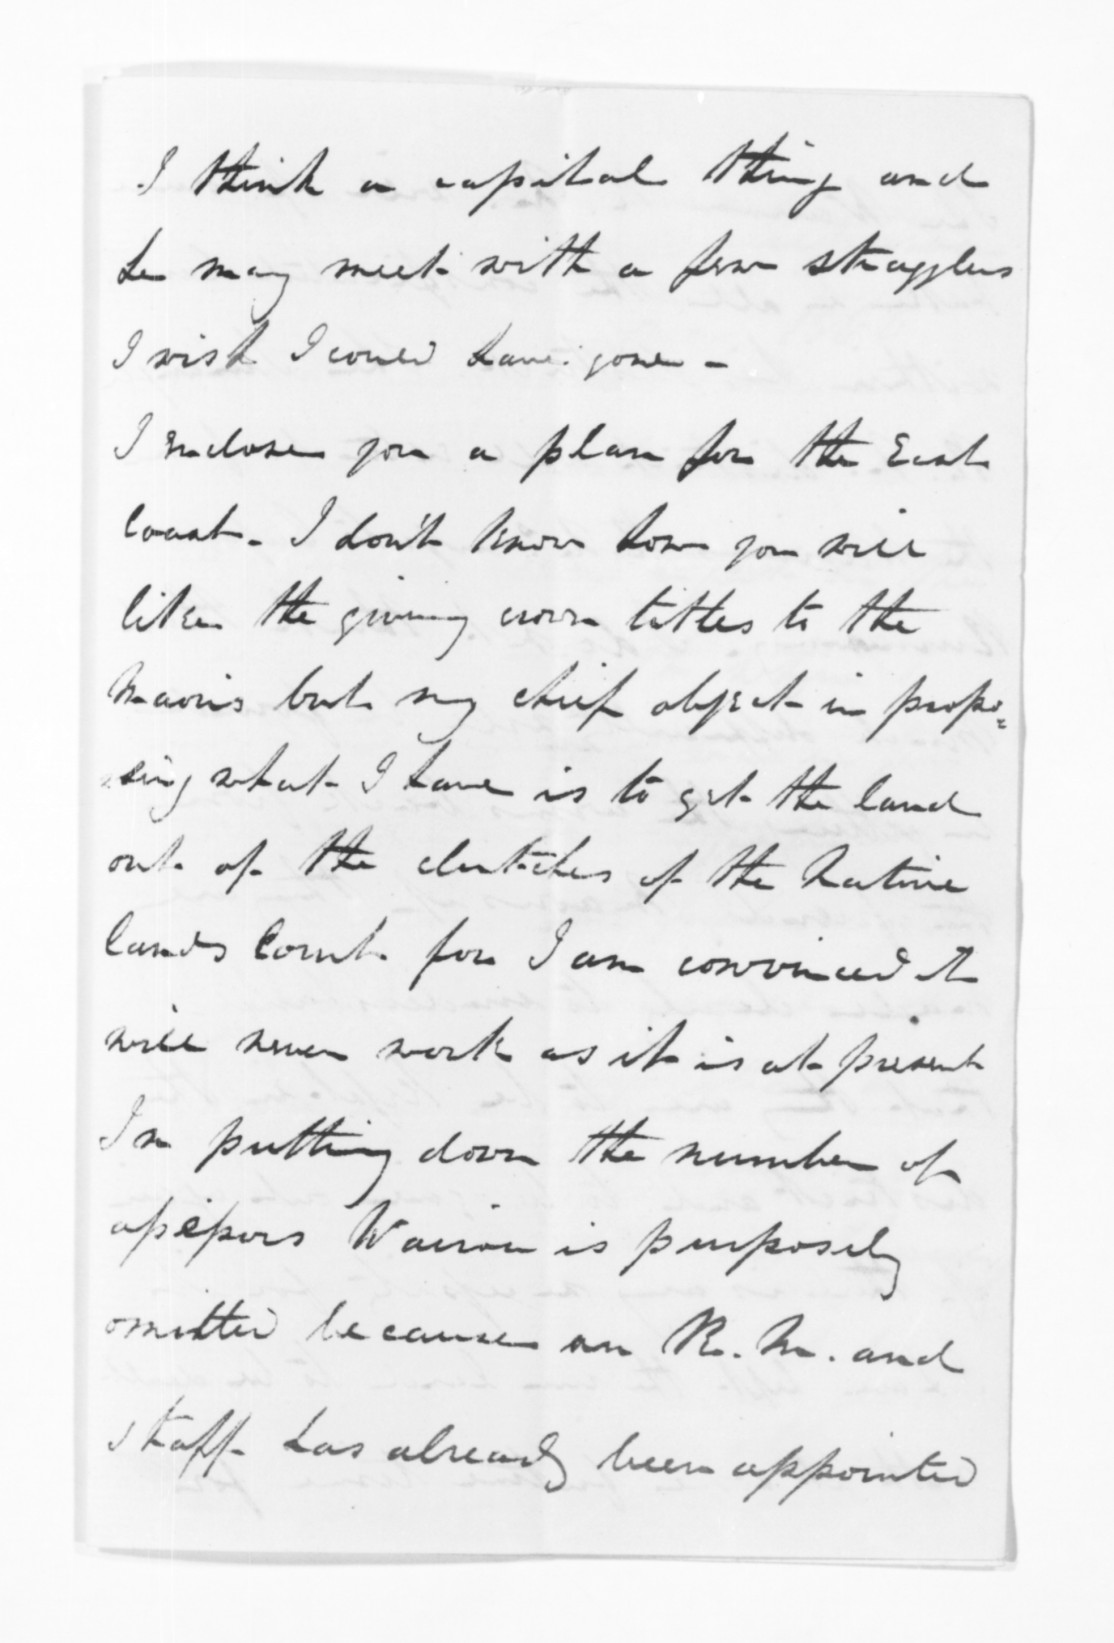 I think a capital thing and
he may meet with a few stragglers
I wish I could have gone -
I enclose you a plan for the East
Coast - I don't know how you will
like the giving crown titles to the
Maoris but my chief object in propo=
sing what I have is to get the land
out of the clutches of the Native
lands Court for I am convinced it
will never work as it is at present
In putting down the number of
Wairoa is purposely
omitted because an R. M. and
staff has already been appointed